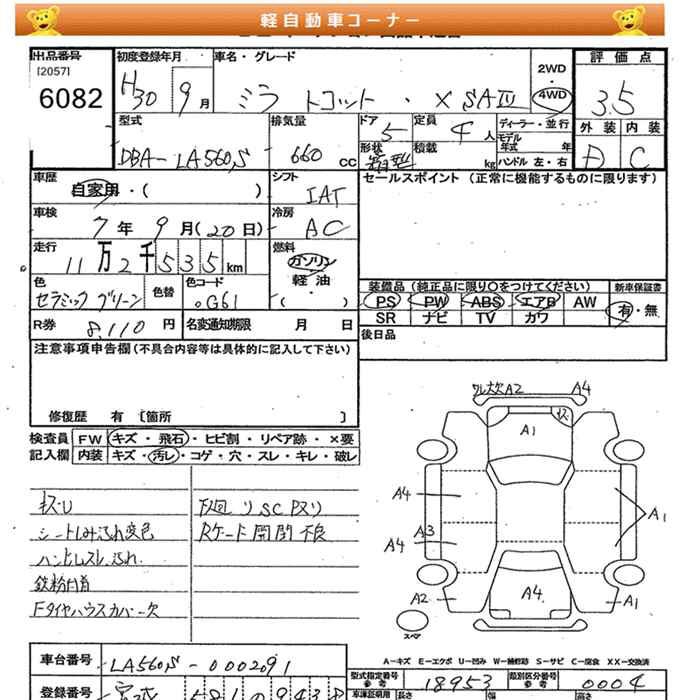 軽自動車コーナー
出品番号 初度登録年月 車名・グレード 2WD 4WD 評価点
[2057]
6082
H30 9月 ミラ トコット・X SAⅢ 3.5
型式 排気量 ドア 定員 ディーラー・並行 外装 内装
DBA-LA560S 660 cc 5 4人 モデル年式 年 D C
形状 積載 kg ハンドル 左・右
車歴 シフト セールスポイント (正常に機能するものに限ります)
自家用・( ) IAT
車検 冷房
7年9月(20日) AC
走行 燃料
11万2千535km ガソリン・軽油・( )
色 色替 色コード 装備品 (純正品に限り○をつけてください) 新車保証書
セラミックグリーン G61 PS PW ABS エアB AW 有・無
SR ナビ TV カワ
R券 8,110円 名変通知期限 月 日 後日品
注意事項申告欄(不具合内容等は具体的に記入して下さい)
修復歴 有 [箇所 ]
検査員記入欄 FW キズ・飛石・ヒビ割・リペア跡・×要
内装 キズ・汚レ・コゲ・穴・スレ・キレ・破レ
キズU
シートしみ汚れ変色
ハンドルスレ、汚れ
鉄粉付着
Fタイヤハウスカバー欠
下廻リSCPヌリ
Rゲート開閉不良
ワレ大欠A2 A4
A1 キズ
A4 A1
A3
A4
A2 A4 A1
スペア
A-キズ E-エクボ U-凹み W-補修跡 S-サビ C-腐食 XX-交換済
車台番号 LA560S-0002091
型式指定番号 参考 18953 類別区分番号 参考 0004
登録番号 宮城 581 0 9438
車庫証明用 長さ 幅 高さ